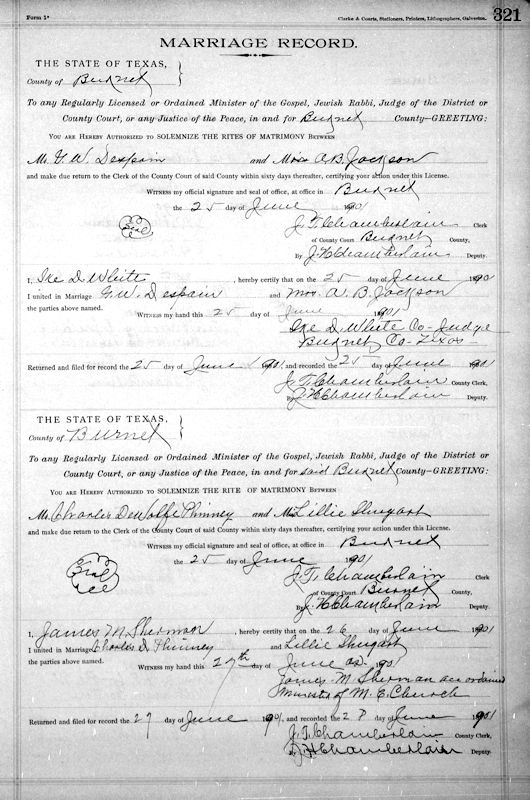 Form 1*
Clarke & Courts, Stationers, Printers, Lithographers, Galveston.
321
MARRIAGE RECORD.
THE STATE OF TEXAS,
County of Burnet
To any Regularly Licensed or Ordained Minister of the Gospel, Jewish Rabbi, Judge of the District or
County Court, or any Justice of the Peace, in and for Burnet County—GREETING:
YOU ARE HEREBY AUTHORIZED TO SOLEMNIZE THE RITES OF MATRIMONY BETWEEN
Mr. G. W. Despain and Mrs A. B. Jackson
and make due return to the Clerk of the County Court of said County within sixty days thereafter, certifying your action under this License.
WITNESS my official signature and seal of office, at office in Burnet
the 25 day of June 1901
Seal
J. T. Chamberlain Clerk
of County Court Burnet County,
By J. H. Chamberlain Deputy.
I, Ike D. White, hereby certify that on the 25 day of June 1901
I united in Marriage G. W. Despain and Mrs A. B. Jackson
the parties above named. Witness my hand this 25 June 1901
Ike D. White Co-Judge
Burnet Co-Texas
Returned and filed for record the 25 day of June 1901, and recorded the 25 day of June 1901
J. T. Chamberlain County Clerk,
J. H. Chamberlain Deputy.
THE STATE OF TEXAS,
County of Burnet
To any Regularly Licensed or Ordained Minister of the Gospel, Jewish Rabbi, Judge of the District or
County Court, or any Justice of the Peace, in and for said Burnet County—GREETING:
YOU ARE HEREBY AUTHORIZED TO SOLEMNIZE THE RITE OF MATRIMONY BETWEEN
Mr. Charles DeWolfe Phinney and M Lillie Shugart
and make due return to the Clerk of the County Court of said County within sixty days thereafter, certifying your action under this License.
WITNESS my official signature and seal of office, at office in Burnet
the 25 day of June 1901
Seal
J. T. Chamberlain Clerk
of County Court Burnet County,
By J. H. Chamberlain Deputy.
I, James M Sherman, hereby certify that on the 26 day of June 1901
I united in Marriage Charles D. Phinney and Lillie Shugart
the parties above named. Witness my hand this 27th June AD. 1901
James M. Sherman an ordained
Minister of M. E. Church
Returned and filed for record the 27 day of June 1901, and recorded the 27 day of June 1901
J. T. Chamberlain County Clerk,
By J. H. Chamberlain Deputy.